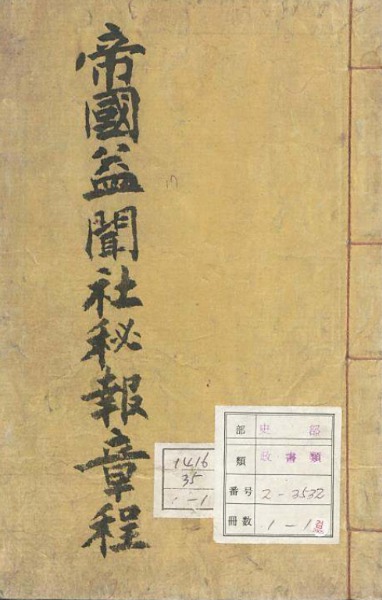 帝國益聞社秘報章程
1416
35
1-1
部 史部
類 政書類
番号 2-3532
冊數 1-1